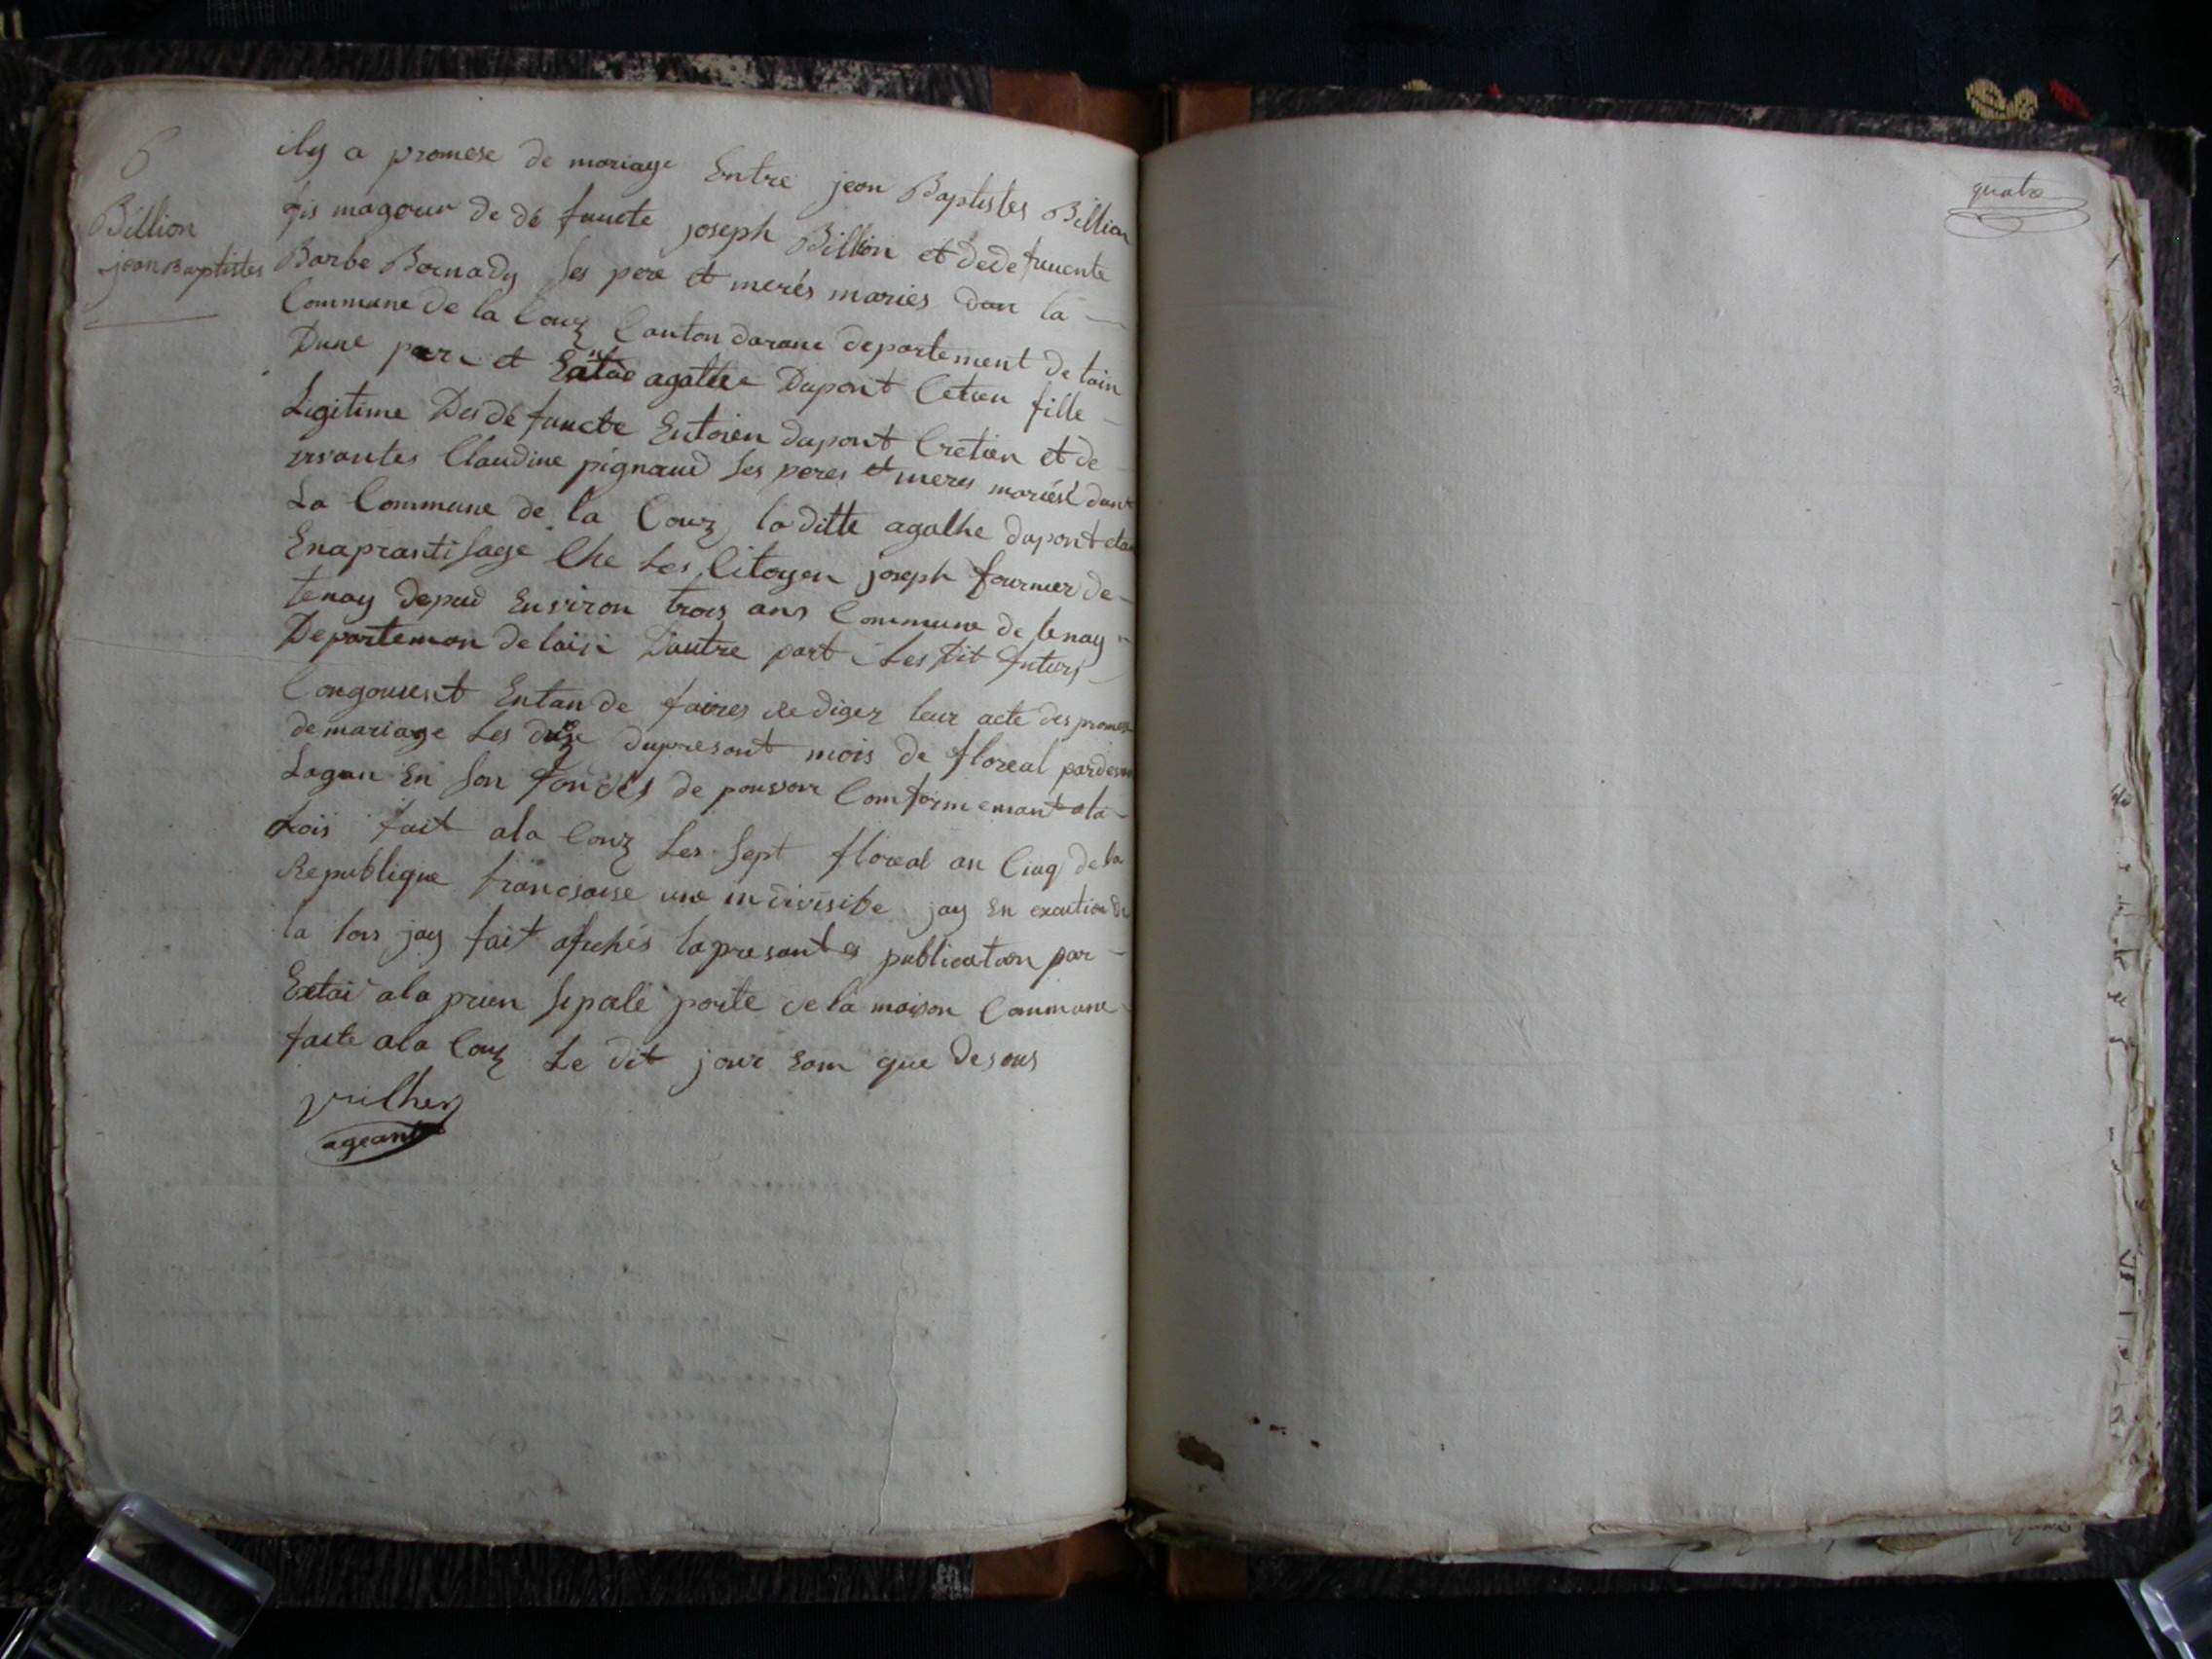 6
Billion
jean Baptistes
ily a promese de mariage Entre jean Baptistes Billion
fis mageur de dé functe joseph Billion et dede fuuente
Barbe Bornady ses pere et merés mariés dan la
Commune de la Couz Canton darane departement de lain
Dune par et Entre agathe Dupont Cretien fille
Ligitime Des dé functe Entoien dupont Cretien et de
vivantes Claudine pignaud ses peres et meres mariés dans
La Commune de la Couz la ditte agathe dupont etan
Enaprantisage Che Les Citoyen joseph fournier de
tenay depuid Environ trois ans Commune de tenay
Departemon de lain Dautre part Les Dit futurs
Congouient Entan de faires rediger leur acte des promese
de mariage Les duze dupresant mois de floreal pardevan
Lagan En son fondés de pouvoir Comformemant ala
Lois fait ala Couz Les sept floreal an Cinq de la
Republique francsaise une indivisibe jay En exeution de
la lois jay fait afichés lapresantes publication par
Extai ala prien sipale porte de la maison Commune
faite ala Couz Le dit jour eam que desous
ageant
quatre